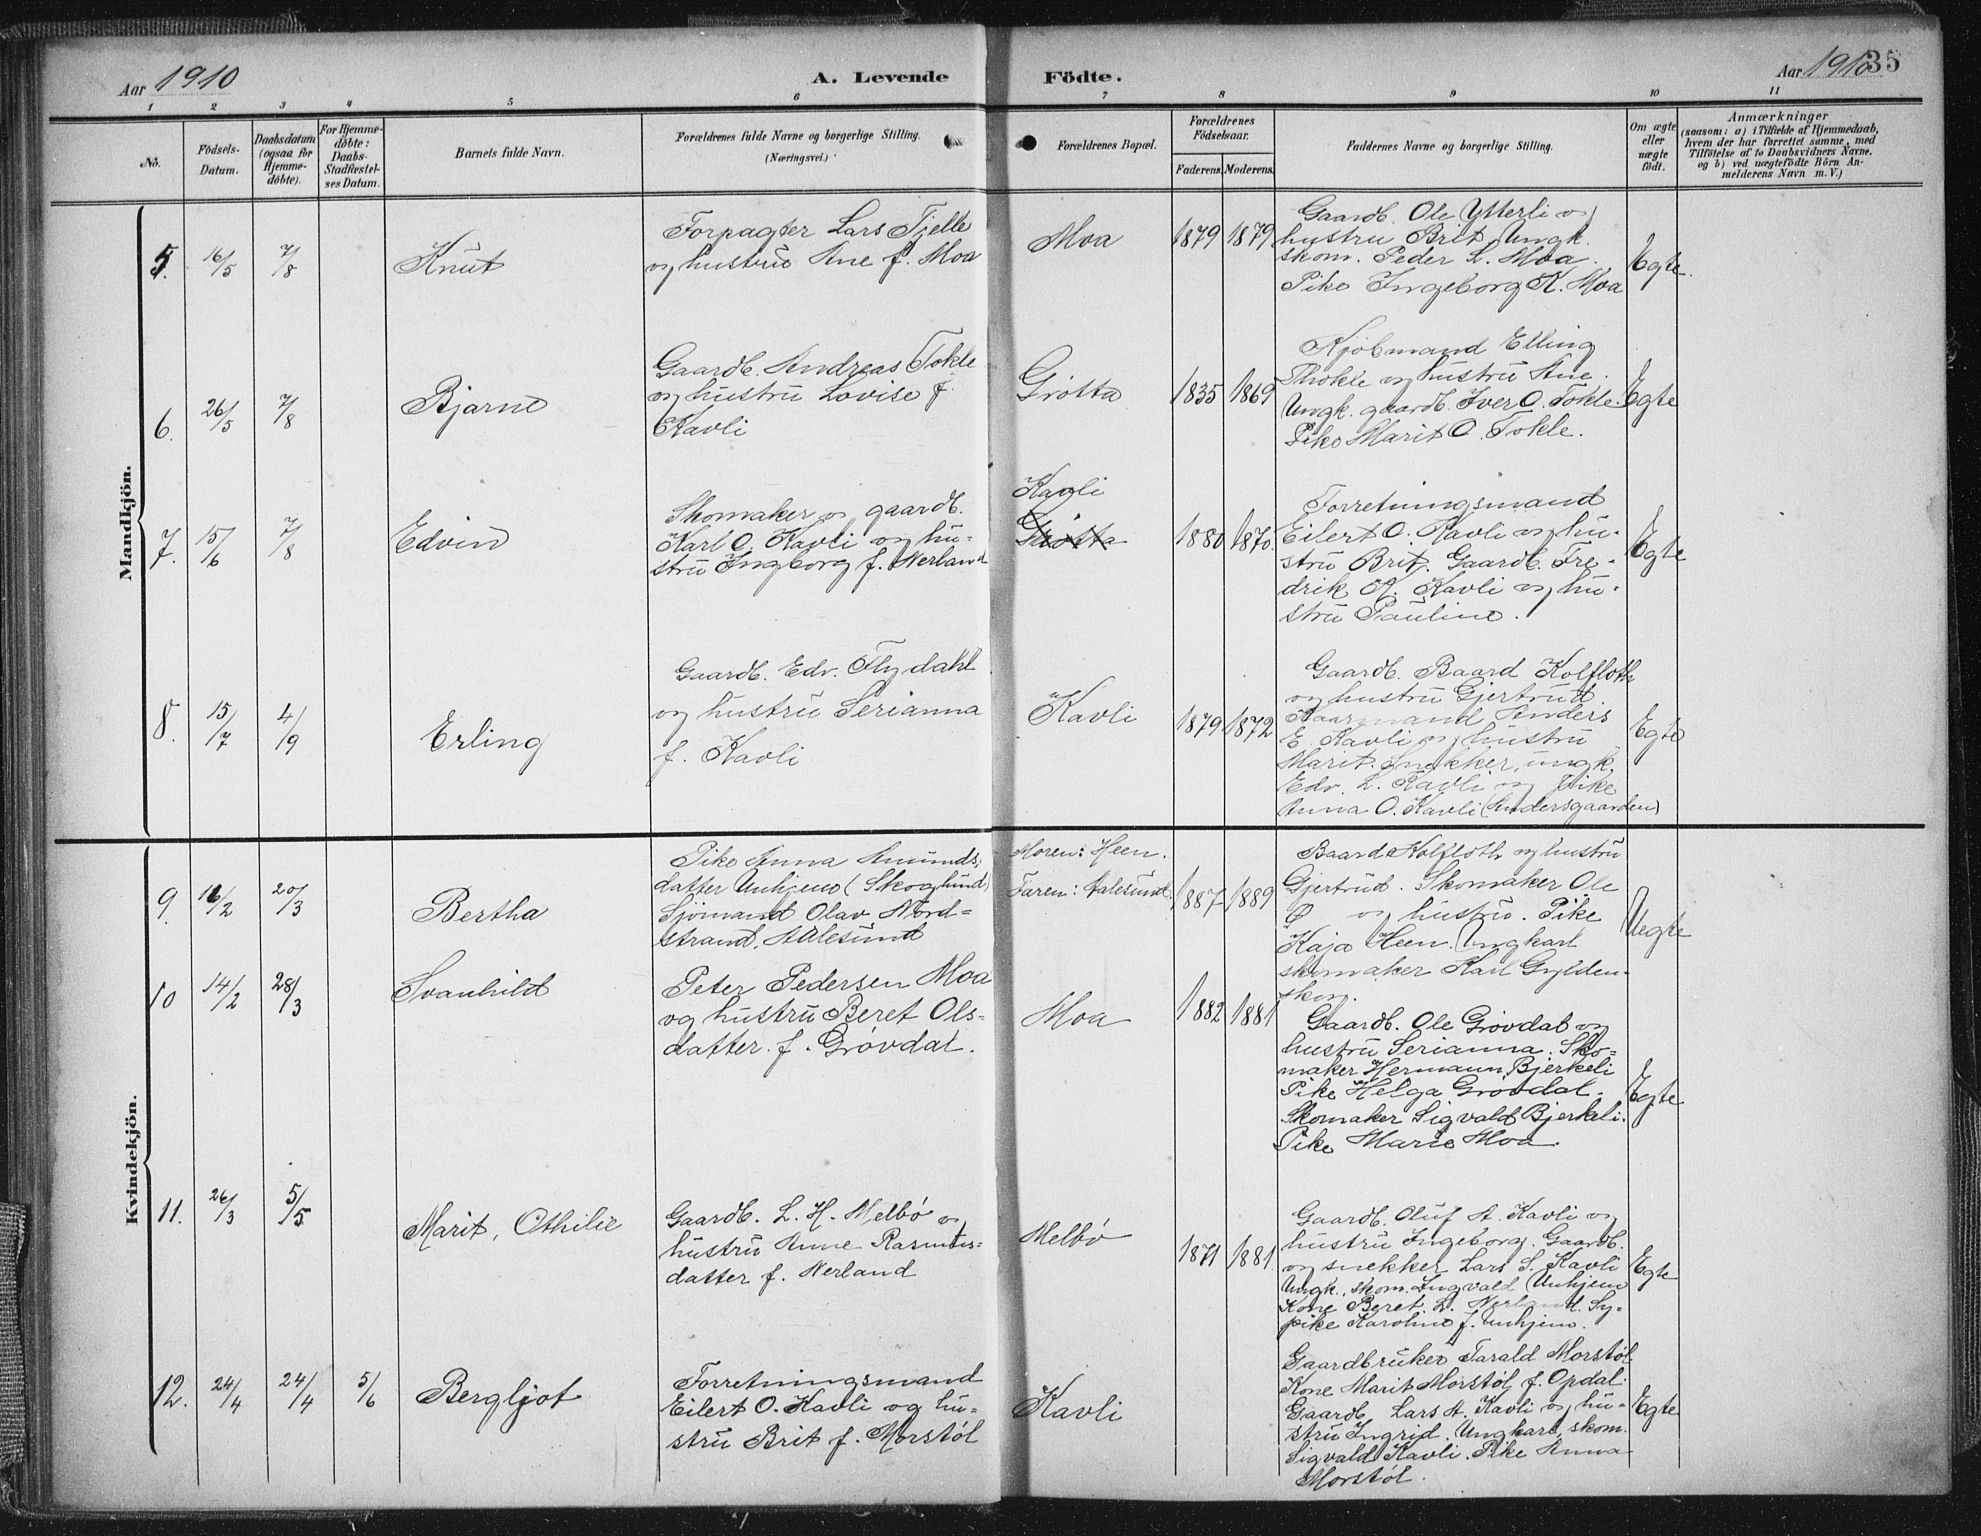 Aar 1910
A. Levende Födte.
Aar 1910
35
1 2 3 4 5 6 7 8 9 10 11
No.
Födsels-Datum.
Daabsdatum (ogsaa for Hjemme-döbte).
For Hjemme-döbte: Daabs-Stadfæstel-ses Datum.
Barnets fulde Navn.
Forældrenes fulde Navne og borgerlige Stilling.
(Næringsvei.)
Forældrenes Bopæl.
Forældrenes Födselsaar.
Faderens. Moderens.
Faddernes Navne og borgerlige Stilling.
Om ægte eller uægte födt.
Anmærkninger
(saasom: a) i Tilfælde af Hjemmedaab,
hvem der har forrettet samme, med
Tilföielse af to Daabsvidners Navne.
og b) ved uægtefödte Börn An-
melderens Navn m. V.)
Mandkjön.
5. 16/5 7/8 Knut
Forpagter Lars Tjelle
og hustru Ane f. Moa
Moa 1879 1879
Gaardb. Ole Ytterli og
hustru Brit. Ungk.
skom. Peder L. Moa.
Pike Ingeborg K. Moa
Egte.
6. 26/5 7/8 Bjarne
Gaardb. Andreas Tokle
og hustru Lovise f.
Kavli
Grötta 1835 1869
Kjöbmand Elling
Thokle og hustru Ane.
Ungk. gaardb. Iver O. Tokle.
Pike Marit O. Tokle.
Egte
7. 15/6 7/8 Edvin
Skomaker og gaardb.
Karl O. Kavli og hu-
stru Ingborg f. Nerland
Kavli
Grötta
1880 1870.
Forretningsmand
Eilert O. Kavli og hu-
stru Brit. Gaardb. Fre-
drik K. Kavli og hu-
stru Pauline.
Egte
8. 15/7 4/9 Erling
Gaardb. Edv. Flydahl
og hustru Serianna
f. Kavli
Kavli 1879 1872
Gaardb. Baard Kolfloth
og hustru Gjertrud.
Kaarmand Anders
E. Kavli og hustru
Marit. Snekker, ungk.
Edv. L. Kavli og pike
Anna O. Kavli (Andersgaarden)
Egte
Kvindekjön.
9. 16/2 20/3 Bertha
Pike Anna Amunds-
datter Unhjem (Skoglund)
Sjömand Olav Nord-
strand, Aalesund
Moren: Heen.
Faren: Aalesund
1887 1889
Baard Kolfloth og hustru
Gjertrud. Skomaker Ole
Ø og hustru. Pike
Kaja Heen. Ungkarl
skomaker Karl Gylden-
skog.
Uegte
10 14/2 28/3 Svanhild
Peter Pedersen Moa
og hustru Beret Ols-
datter f. Grövdal.
Moa 1882 1881
Gaardb. Ole Grövdal og
hustru Serianna. Sko-
maker Hermann Bjerkeli
Pike Helga Grövdal.
Skomaker Sigvald Bjerkeli.
Pike Marie Moa.
Egte
11. 26/3 5/5 Marit, Othilie
Gaardb. L. H. Melbö og
hustru Anne Rasmus-
datter f. Nerland
Melbö 1871 1881
Gaardb. Oluf A. Kavli og
hustru Ingeborg. Gaardb.
og snekker Lars S. Kavli
Ungk., skom. Ingvald Unhjem
Kone Beret L. Nerland. Sy-
pike Karoline f. Unhjem.
Egte
12. 24/4 24/4 5/6 Bergljot
Forretningsmand
Eilert O. Kavli og hu-
stru Brit f. Morstöl
Kavli
Gaardbruker Tarald Morstöl
Kone Marit Morstöl f. Opdal.
Gaardb. Lars A. Kavli og hu-
stru Ingrid. Ungkarl, skom.
Sigvald Kavli. Pike Anna
Morstöl.
Egte